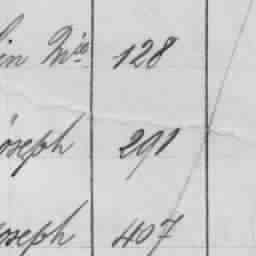 in Nic 128
oseph 291
oseph 407